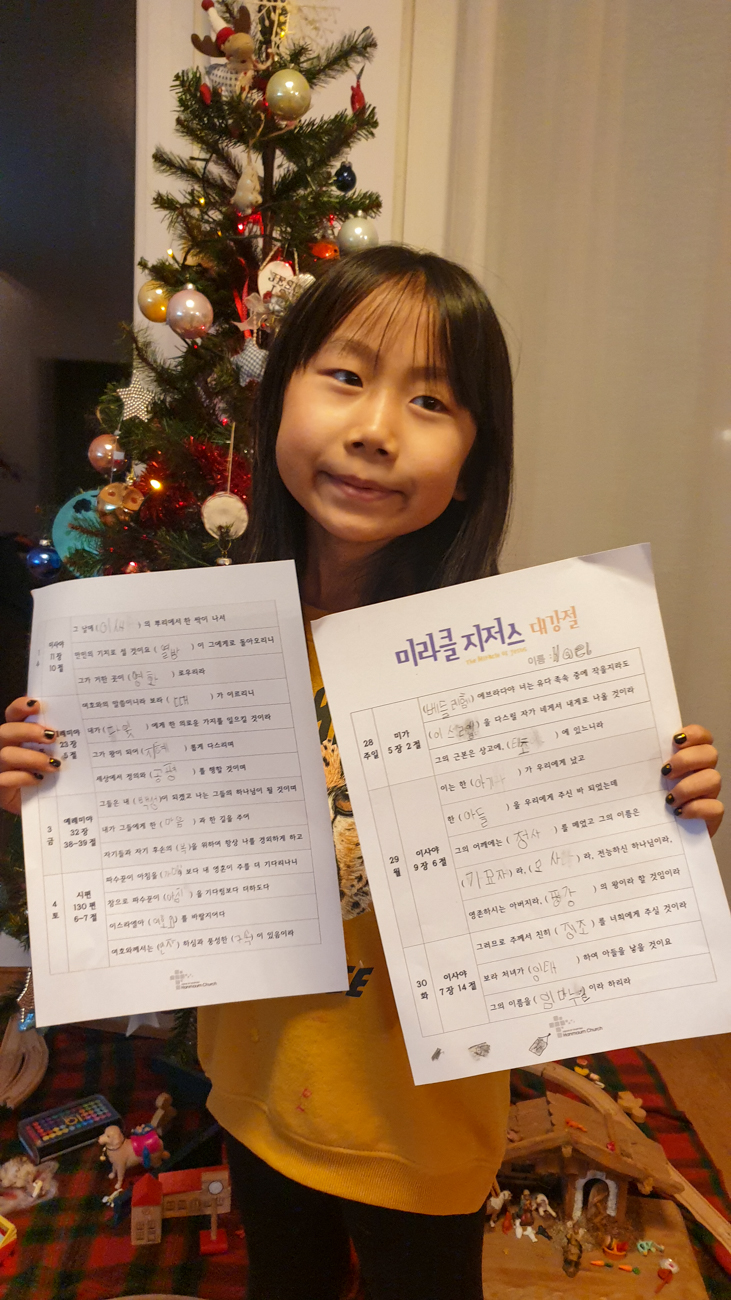 그 날에 (이새) 의 뿌리에서 한 싹이 나서
이사야
11장
10절
만민의 기치로 설 것이요 (열방) 이 그에게로 돌아오리니
그가 거한 곳이 (영화) 로우리라
여호와의 말씀이니라 보라 (때) 가 이르리니
예레미야
23장
5절
내가 (다윗) 에게 한 의로운 가지를 일으킬 것이라
그가 왕이 되어 (지혜) 롭게 다스리며
세상에서 정의와 (공평) 를 행할 것이며
3
금
예레미야
32장
38-39절
그들은 내 (백성)이 되겠고 나는 그들의 하나님이 될 것이며
내가 그들에게 한 (마음) 과 한 길을 주어
자기들과 자기 후손의 (복)을 위하여 항상 나를 경외하게 하고
4
토
시편
130 편
6-7 절
파수꾼이 아침을 보다 내 영혼이 주를 더 기다리나니
참으로 파수꾼이 (아침) 을 기다림보다 더하도다
이스라엘아 (여호와) 를 바랄지어다
여호와께서는 (인자) 하심과 풍성한 (구속) 이 있음이라
Hanmaum Church
미라클 지저스 대강절
The Miracle of Jesus
이름 :
28
주일
미가
5 장 2 절
(베들레헴) 에브라다야 너는 유다 족속 중에 작을지라도
(이스라엘) 을 다스릴 자가 네게서 내게로 나올 것이라
그의 근본은 상고에, (태초) 에 있느니라
29
월
이사야
9 장 6 절
이는 한 (아기) 가 우리에게 났고
한 (아들) 을 우리에게 주신 바 되었는데
그의 어깨에는 (정사) 를 메었고 그의 이름은
(기묘자) 라, (모사) 라, 전능하신 하나님이라,
영존하시는 아버지라, (평강) 의 왕이라 할 것임이라
30
화
이사야
7 장 14 절
그러므로 주께서 친히 (징조) 를 너희에게 주실 것이라
보라 처녀가 (잉태) 하여 아들을 낳을 것이요
그의 이름을 (임마누엘) 이라 하리라
Hanmaum Church